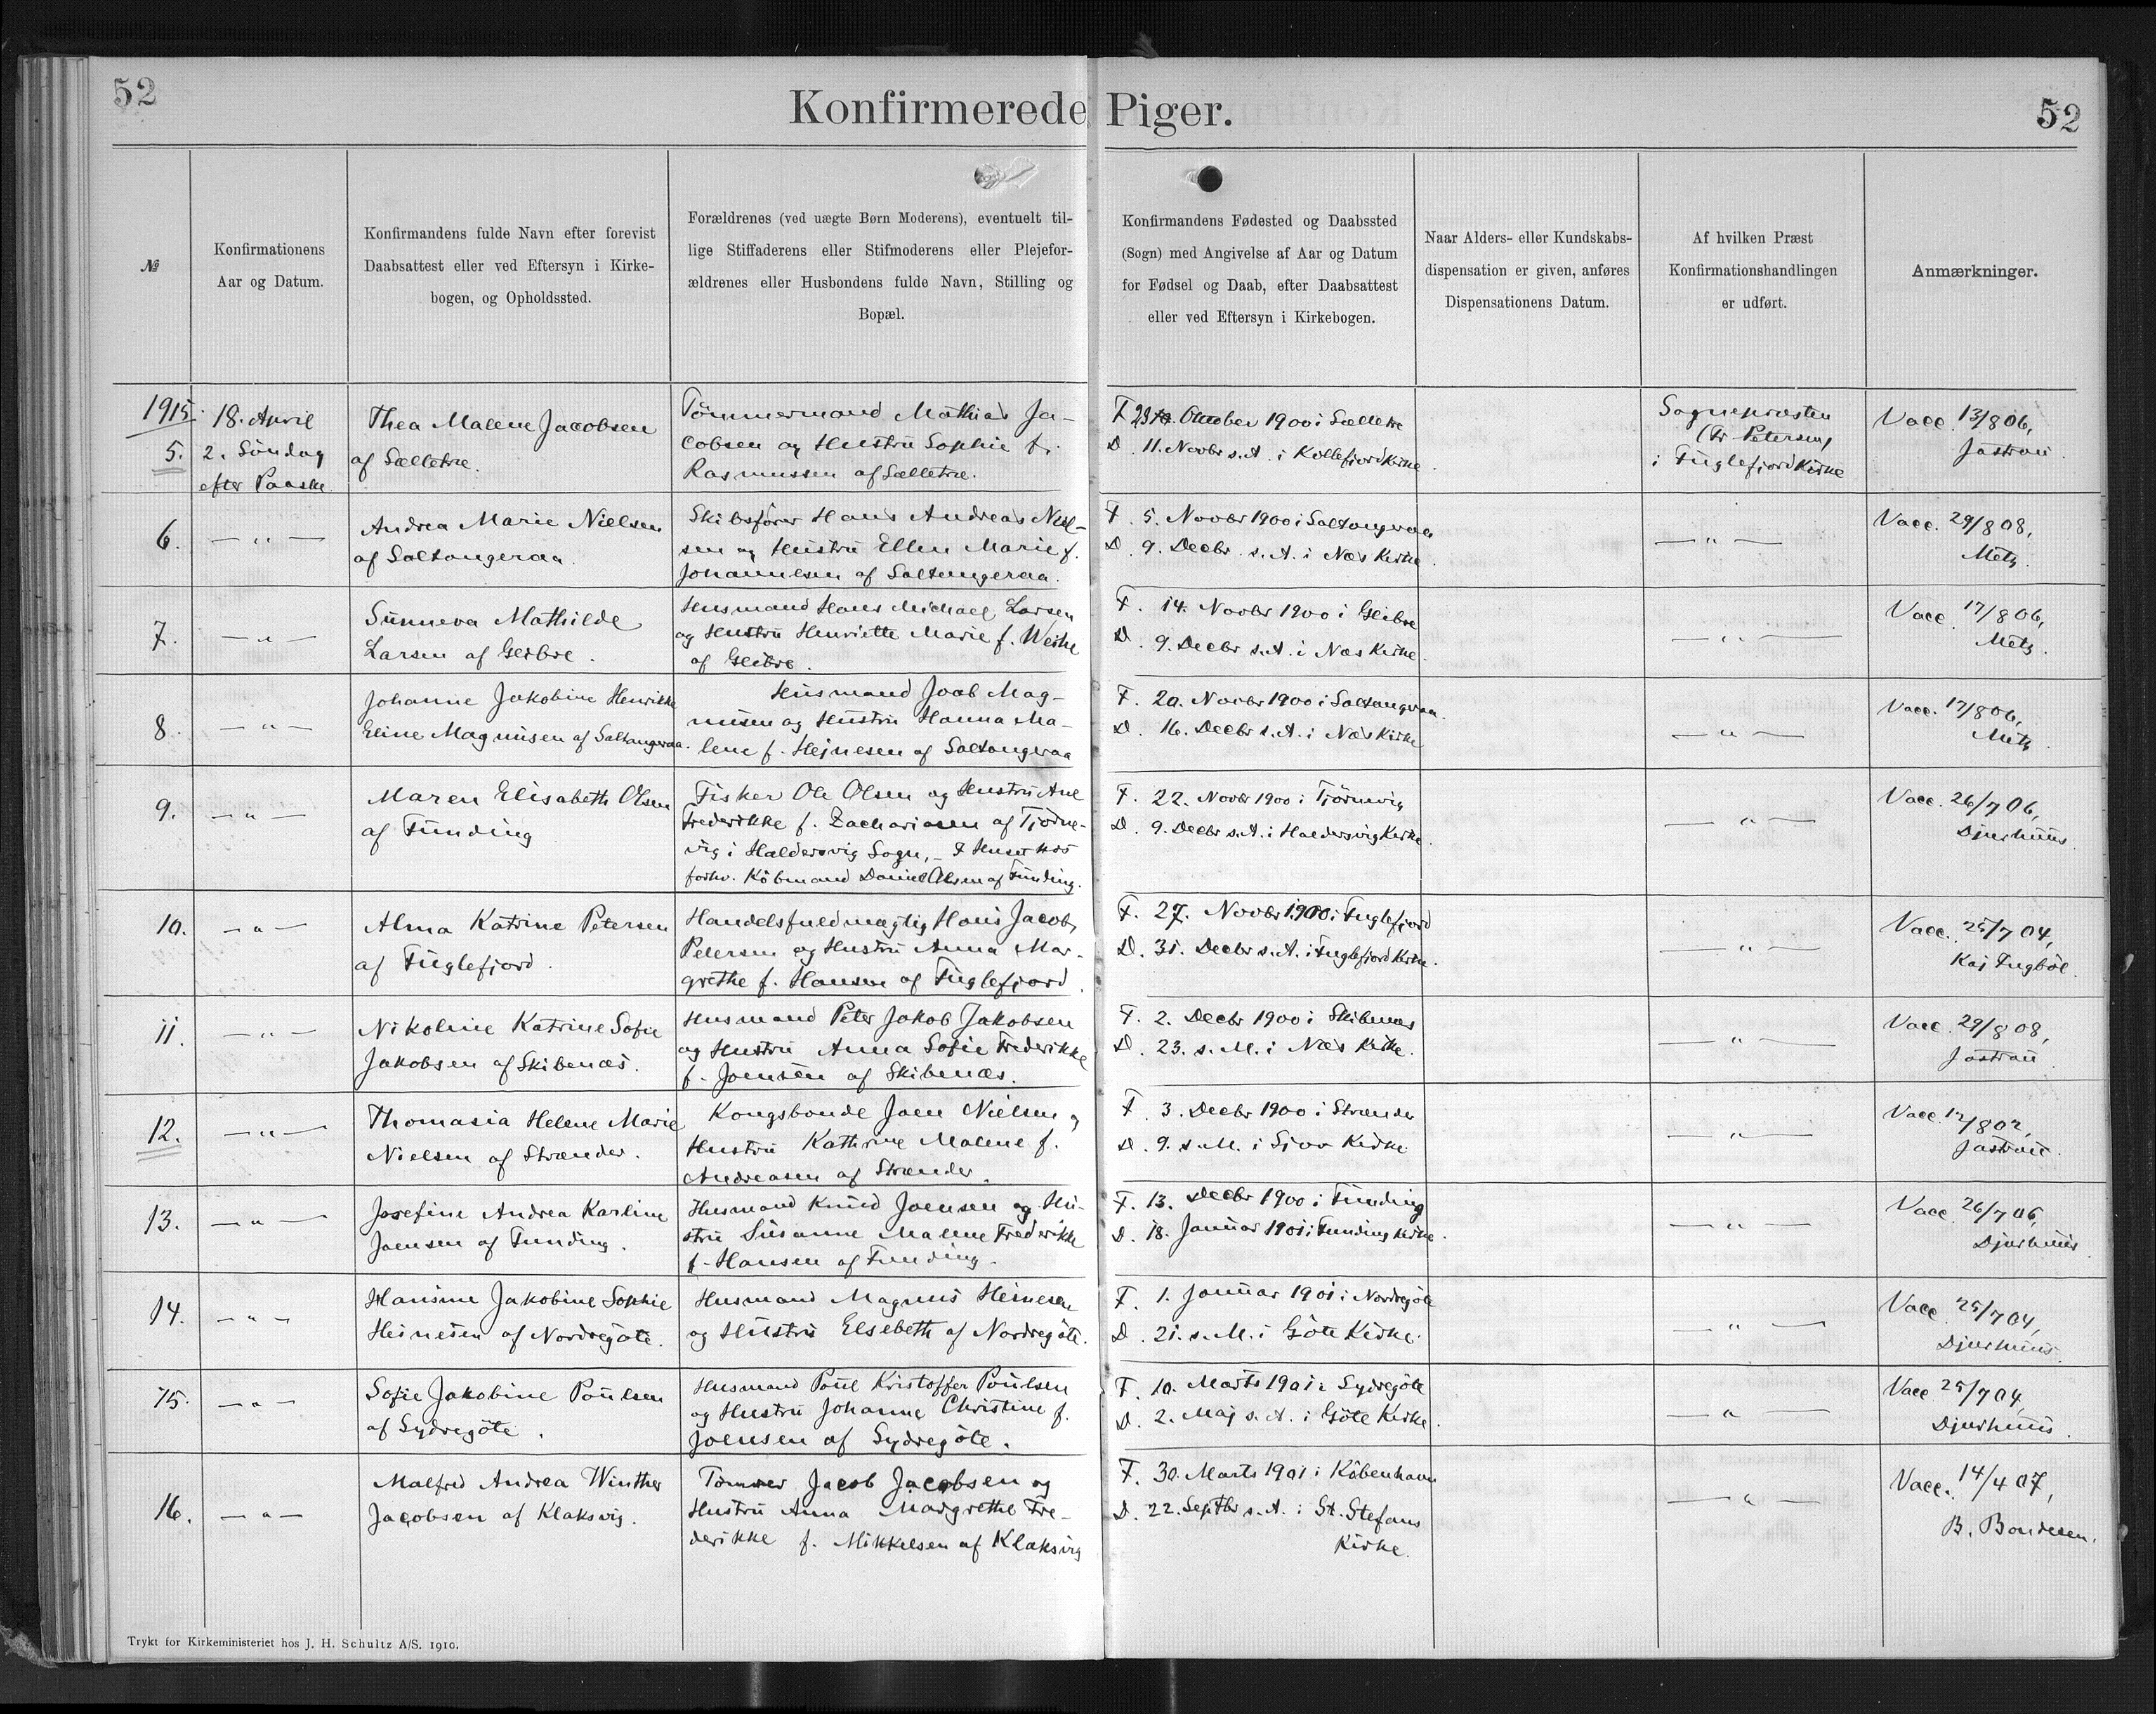 52
Konfirmerede Piger.
52
№
Konfirmationens
Aar og Datum.
Konfirmandens fulde Navn efter forevist
Daabsattest eller ved Eftersyn i Kirke-
bogen, og Opholdssted.
Forældrenes (ved uægte Børn Moderens), eventuelt til-
lige Stiffaderens eller Stifmoderens eller Plejefor-
ældrenes eller Husbondens fulde Navn, Stilling og
Bopæl.
Konfirmandens Fødested og Daabssted
(Sogn) med Angivelse af Aar og Datum
for Fødsel og Daab, efter Daabsattest
eller ved Eftersyn i Kirkebogen.
Naar Alders- eller Kundskabs-
dispensation er given, anføres
Dispensationens Datum.
Af hvilken Præst
Konfirmationshandlingen
er udført.
Anmærkninger.
1915.
5.
18. April
2. Søndag
efter Paaske.
Thea Malene Jacobsen
af Selletræ.
Tömmermand Mathias Ja-
cobsen og Hustru Sophie f.
Rasmussen af Selletræ.
F 23 Oktober 1900 i Selletræ
D. 11. Novbr s.A. i Kollefjord Kirke.
Sognepræsten
Fr. Petersen,
i Fuglefjord Kirke
Vacc. 13/8 06,
Jastrau.
6.
— " —
Andrea Marie Nielsen
af Saltangeraa.
Skibsfører Hans Andreas Niel-
sen og Hustru Ellen Marie f.
Johannesen af Saltangeraa.
F. 5. Novbr 1900 i Saltangeraa
D. 9. Decbr. s.A. i Næs Kirke.
— " —
Vacc. 29/8 08,
Metz.
7.
— " —
Sunneva Mathilde
Larsen af Glibre.
Husmand Hans Michael Larsen
og Hustru Henriette Marie f. Weihe
af Glibre.
F. 14. Novbr 1900 i Glibre
D. 9. Decbr s.A. i Næs Kirke.
— " —
Vacc. 17/8 06,
Metz.
8.
— " —
Johanne Jakobine Henrikke
Eline Magnusen af Saltangeraa.
Husmand Joab Mag-
nusen og Hustru Hanna Ma-
lene f. Hejnesen af Saltangeraa
F. 20. Novbr 1900 i Saltangeraa.
D. 16. Decbr s.A. i Næs Kirke
— " —
Vacc. 17/8 06,
Metz.
9.
— " —
Maren Elisabeth Olsen
af Funding
Fisker Ole Olsen og Hustru Ane
Frederikke f. Zachariasen af Tjörne-
vig i Haldersvig Sogn, – I Huset hos
forhv. Köbmand Daniel Olsen af Funding.
F. 22. Novbr 1900 i Tjörnevig
D. 9. Decbr s.A. i Haldersvig Kirke.
— " —
Vacc. 26/7 06,
Djurhuus.
10.
— " —
Alma Katrine Petersen
af Fuglefjord.
Handelsfuldmægtig Hans Jacob
Petersen og Hustru Anna Mar-
grethe f. Hansen af Fuglefjord.
F. 27. Novbr 1900 i Fuglefjord
D. 31. Decbr s.A. i Fuglefjord Kirke.
— " —
Vacc. 25/7 04,
Kaj Fugböl.
11.
— " —
Nikoline Katrine Sofie
Jakobsen af Skibenæs.
Husmand Peter Jakob Jakobsen
og Hustru Anna Sofie Frederikke
f. Joensen af Skibenæs.
F. 2. Decbr 1900 i Skibenæs
D. 23. s.M. i Næs Kirke.
— " —
Vacc. 29/8 08,
Jastrau.
12.
— " —
Thomasia Helene Marie
Nielsen af Strænder.
Kongsbonde Joen Nielsen og
Hustru Kathrine Malene f.
Andreasen af Strænder.
F. 3. Decbr 1900 i Strænder
D. 9. s.M. i Sjov Kirke.
— " —
Jastrau.
13.
— " —
Josefine Andrea Karline
Joensen af Funding.
Husmand Knud Joensen og Hu-
stru Susanne Malene Frederikke
f. Hansen af Funding.
F. 13. Decbr 1900 i Funding
D. 18. Januar 1901 i Funding Kirke.
— " —
Vacc. 26/7 06,
Djurhuus.
14.
— " —
Hansine Jakobine Sophie
Heinesen af Nordregöte.
Husmand Magnus Heinesen
og Hustru Elsebeth af Nordregöte.
F. 1. Januar 1901 i Nordregöte
D. 21. s.M. i Göte Kirke.
— " —
Vacc. 25/7 04,
Djurhuus.
15.
— " —
Sofie Jakobine Poulsen
af Sydregöte.
Husmand Poul Kristoffer Poulsen
og Hustru Johanne Christine f.
Joensen af Sydregöte.
F. 10. Marts 1901 i Sydregöte
D. 2. Maj s.A. i Göte Kirke.
— " —
Vacc. 25/7 04,
Djurhuus.
16.
— " —
Malfred Andrea Winther
Jacobsen af Klaksvig.
Tömrer Jacob Jacobsen og
Hustru Anna Margrethe Fre-
derikke f. Mikkelsen af Klaksvig
F. 30. Marts 1901 i Köbenhavn
D. 22. Septbr s.A. i St. Stefans
Kirke.
— " —
Vacc. 14/4 07,
B. Bondesen.
Trykt for Kirkeministeriet hos J. H. Schultz A/S. 1910.